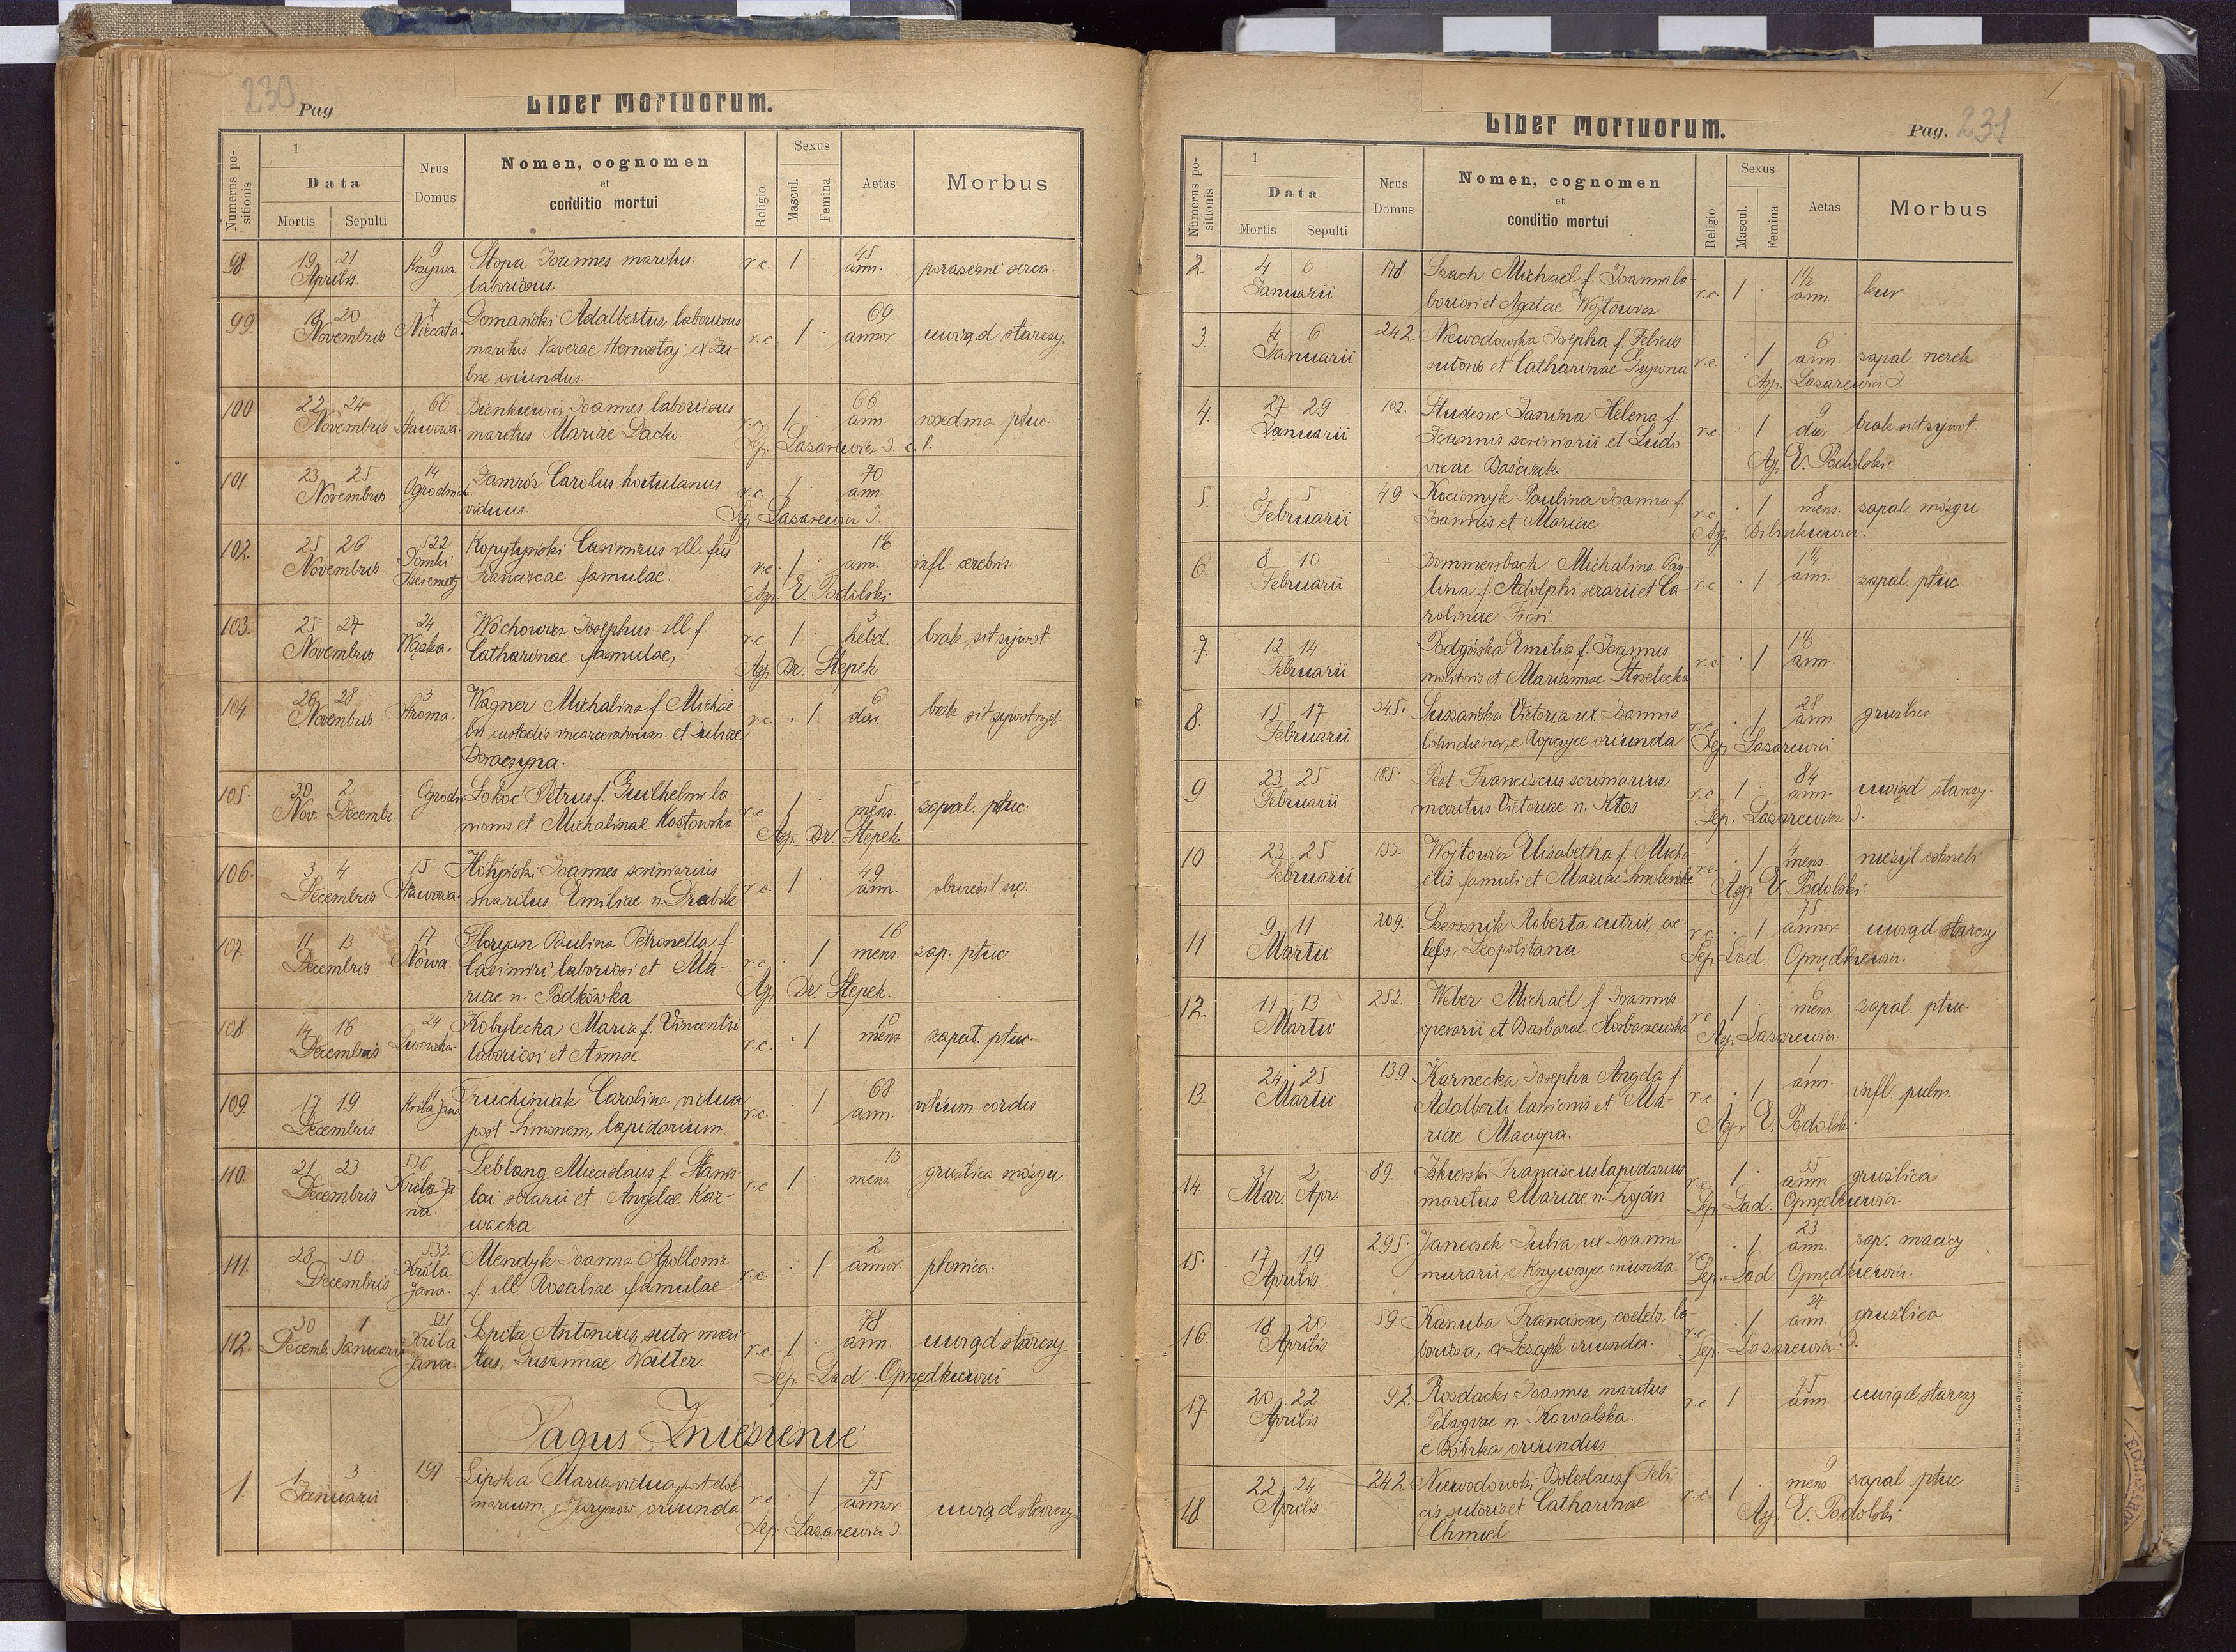 230 Pag
Liber Mortuorum.
Numerus positionis
1
Data
Mortis Sepulti
Nrus Domus
Nomen, cognomen
et
conditio mortui
Religio
Sexus
Mascul. Femina
Aetas
Morbus
98. 19 21 Aprilis. 9 Krzywa Stopa Joannes maritus. r.c. 1 45 ann. porażenie serca.
laboriosus.
99 18 20 Novembris 7 Domański Adalbertus, laboriosus r.c. 1 69 annor. uwiąd starczy.
maritus Xaverae Hornostaj, ex Zu-
bne oriundus
100 22 24 Novembris 66 Stawowa. Bienkiewicz Joannes laboriosus r.c. 1 66 ann. rozedma płuc.
maritus Mariae Dacko.
Sep. Lazarewicz J. c. l.
101. 23 25 Novembris 14 Ogrodnick Zamróz Carolus hortulanus r.c. 1 70 ann
viduus. Sep. Lazarewicz J.
102. 25 26 Novembris 522 Kopytyński Casimirus ill. fil. r.c. 1 ann. infl. cerebri.
Franciscae famulae. Asp. E. Podolski
103. 25 27 Novembris 24 Wąska. Wochowicz Josephus ill. f. r.c. 1 3 hebd. brak sił żywot.
Catharinae famulae, Asp. Dr. Stepek
104. 26 28 Novembris 3 Stroma. Wagner Michalina f. Michae r.c. 1 6 dier. brak sił żywotnych
lis custodis incarceratorum et Juliae
Doraczyna.
105. 30 2 Nov. Decembr. Ogrodn Łokoć Petrus f. Guilhelmi la- r.c. 1 5 mens. zapal. płuc.
nionis et Michalinae Kostowska
Asp. Dr. Stepek
106. 3 4 Decembris 15 Stawowa. Hołyński Joannes scriniarius r.c. 1 49 ann. obwiesił się.
maritus Emiliae n. Drabik
107. 11 13 Decembris 17 Nowa. Floryan Paulina Petronella f. r.c. 1 16 mens. zap. płuc
Casimiri laboriosi et Ma-
riae n. Podkówka Asp. Dr. Stepek.
108. 14 16 Decembris 24 Lwowska. Kobylecka Maria f. Vincentii r.c. 1 10 mens zapal. płuc.
laboriosi et Annae
109. 17 19 Decembris 4 Króla Jana Truchimiak Carolina vidua r.c. 1 68 ann. vitium cordis
post Simonem, lapidarium.
110. 21 23 Decembris 536 Króla Ja
na. Leblang Miecislaus f. Stanis r.c. 1 13 mens. gruźlica mózgu
lai serarii et Angelae Kar-
wacka
111. 28 30 Decembris 532 Króla
Jana. Mendyk Joanna Apollonia r.c. 1 2 annor. płonica.
f. ill. Rosaliae famulae
112. 30 1 Decemb. Januarii 531 Króla
Jana. Szpita Antonius, sutor mari r.c. 1 78 ann uwiąd starczy.
tus, Susannae Walter.
Sep. Lad. Opnędkiewicz
Pagus Zniesienie
1. 1 3 Januarii 191 Lipska Maria, vidua post dol r.c. 1 75 annor. uwiąd starczy
iarium, e Jaryczów oriunda
Sep. Lazarewicz J.
Liber Mortuorum.
Pag. 231
Numerus positionis
1
Data
Mortis Sepulti
Nrus Domus
Nomen, cognomen
et
conditio mortui
Religio
Sexus
Mascul. Femina
Aetas
Morbus
2. 4 6 Januarii 178. Szach Michaël f. Joannis la r.c. 1 1½ ann. kur.
boriosi et Agatae Wojtowicz
3. 4 6 Januarii 242 Niewodowska Josepha f. Felicis r.c. 1 6 ann. zapal. nerek
sutoris et Catharinae
Asp. Lazarewicz J.
4. 27 29 Januarii 102. Studene Janina Helena f. r.c. 1 9 dier. brak sił żywot.
Joannis scriniarii et Ludo
vicae Baściak. Asp. E. Podolski.
5. 3 5 Februarii 49 Kociomyk Paulina Joanna f. r.c. 1 8 mens. zapal. mózgu
Joannis et Mariae Asp. Bilinkiewicz.
6. 8 10 Februarii Dommersbach Michalina Pau r.c. 1 1¼ ann. zapal. płuc
lina f. Adolphi serarii et Ca-
rolinae Froń.
7. 12 14 Februarii Podgórska Emilia f. Joannis r.c. 1 ann.
molitoris et Mariannae Strzelecka
8. 15 17 Februarii 345. Suszańska Victoria ux Joannis r.c. 1 28 ann gruźlica
lohndiener, e Ropczyce oriunda
Sep. Lazarewicz
9. 23 25 Februarii 185. Pest Franciscus scriniarius, r.c. 1 84 ann. uwiąd starczy.
maritus Victoriae n. Kłos
Sep. Lazarewicz J.
10. 23 25 Februarii Wojtowicz Elisabetha f. Micha r.c. 1 4 mens. nieżyt oskrzeli
ëlis famuli et Mariae Smoleńska
Asp. E. Podolski.
11 9 11 Martii 209. Roberta cutrix, cae r.c. 1 75 annor. uwiąd starczy
lebs, Leopolitana Sep. Lad. Opnędkiewicz.
12. 11 13 Martii 252. Weber Michaël f. Joannis r.c. 1 6 mens. zapal. płuc.
operarii et Barbarae Horbaczewska
Asp. Lazarewicz.
13. 24 25 Martii 139 Karnecka Josepha Angela f. r.c. 1 1 ann. infl. pulm.
Adalberti lanionis et Ma-
riae Maciąga. Asp. E. Podolski.
14 31 2 Mar. Apr. 89. Franciscus lapidarius r.c. 1 35 ann. gruźlica
maritus Mariae n. Kojan
Sep. Lad. Opnędkiewicz.
15. 17 19 Aprilis 295. Janeczek Julia ux Joannis r.c. 1 23 ann. zap. macicy
murarii e Krzywczyce oriunda
Sep. Lad. Opnędkiewicz.
16. 18 20 Aprilis 59. Kanuba Franciscae, caelebs, la r.c. 1 24 ann. gruźlica
boriosa, ex Leżajsk oriunda. Sep. Lazarewicz J.
17. 20 22 Aprilis 92. Rozdacki Joannes maritus r.c. 1 75 ann. uwiąd starczy.
Pelagiae n. Kowalska.
e Bóbrka oriundus
18 22 24 Aprilis 242 Niewodowski Boleslaus f. Feli r.c. 1 9 mens. zapal. płuc
cis sutoris et Catharinae
Chmiel Asp. E. Podolski